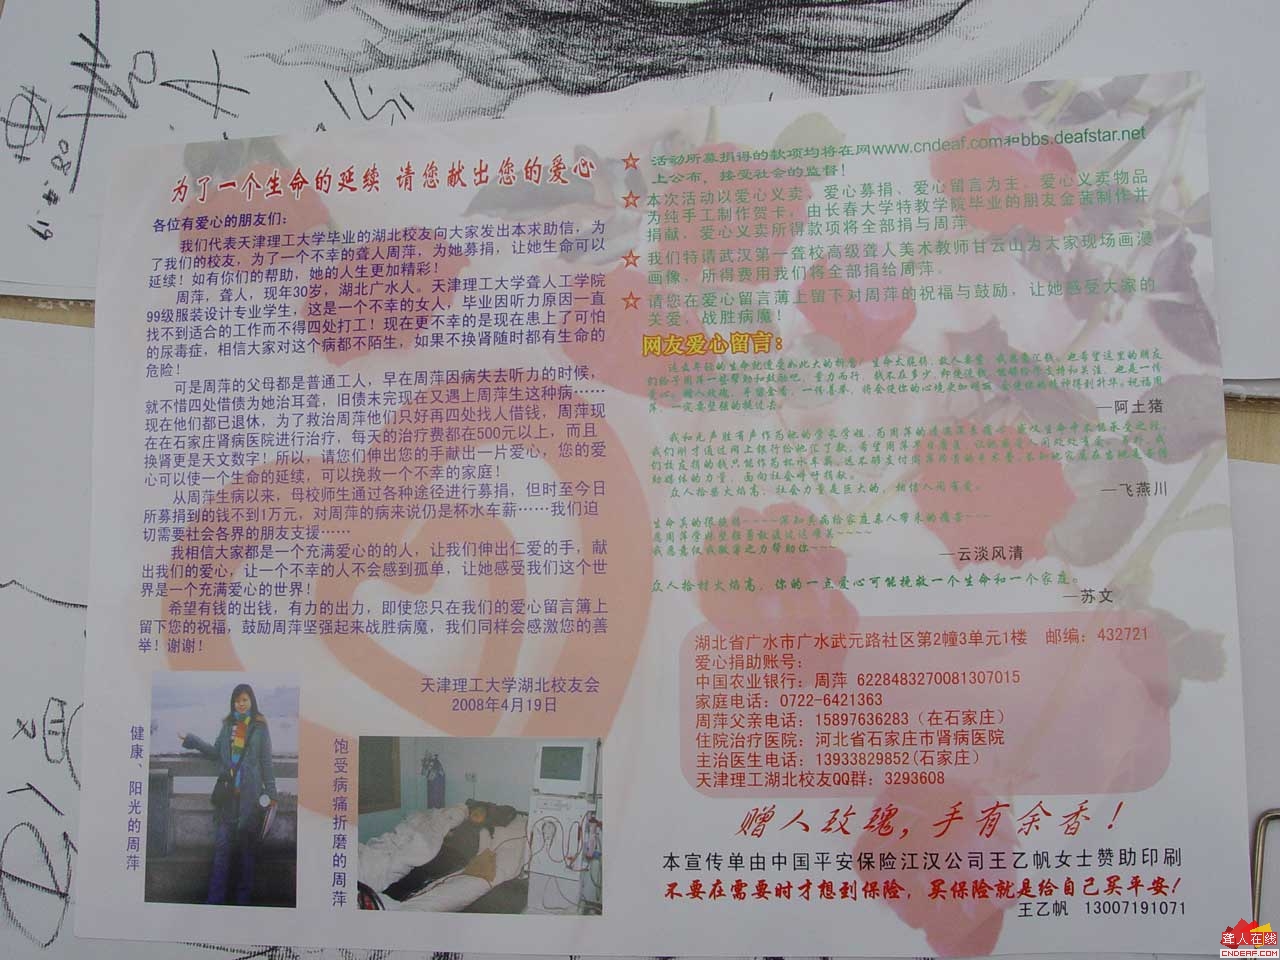 为了一个生命的延续 请您献出您的爱心
各位有爱心的朋友们：
我们代表天津理工大学毕业的湖北校友向大家发出本求助信，为
了我们的校友，为了一个不幸的聋人周萍，为她募捐，让她生命可以
延续！如有你们的帮助，她的人生更加精彩！
周萍，聋人，现年30岁，湖北广水人。天津理工大学聋人工学院
99级服装设计专业学生，这是一个不幸的女人，毕业因听力原因一直
找不到适合的工作而不得四处打工！现在更不幸的是现在患上了可怕
的尿毒症，相信大家对这个病都不陌生，如果不换肾随时都有生命的
危险！
可是周萍的父母都是普通工人，早在周萍因病失去听力的时候，
就不惜四处借债为她治耳聋，旧债未完现在又遇上周萍生这种病……
现在他们都已退休，为了救治周萍他们只好再四处找人借钱，周萍现
在在石家庄肾病医院进行治疗，每天的治疗费都在500元以上，而且
换肾更是天文数字！所以，请您们伸出您的手献出一片爱心，您的爱
心可以使一个生命的延续，可以挽救一个不幸的家庭！
从周萍生病以来，母校师生通过各种途径进行募捐，但时至今日
所募捐到的钱不到1万元，对周萍的病来说仍是杯水车薪……我们迫
切需要社会各界的朋友支援……
我相信大家都是一个充满爱心的的人，让我们伸出仁爱的手，献
出我们的爱心，让一个不幸的人不会感到孤单，让她感受我们这个世
界是一个充满爱心的世界！
希望有钱的出钱，有力的出力，即使您只在我们的爱心留言簿上
留下您的祝福，鼓励周萍坚强起来战胜病魔，我们同样会感激您的善
举！谢谢！
天津理工大学湖北校友会
2008年4月19日
健康、阳光的周萍
饱受病痛折磨的周萍
☆ 活动所募捐得的款项均将在网www.cndeaf.com和bbs.deafstar.net
上公布，接受社会的监督！
☆ 本次活动以爱心义卖、爱心募捐、爱心留言为主。爱心义卖物品
为纯手工制作贺卡，由长春大学特教学院毕业的朋友金茜制作并
捐献，爱心义卖所得款项将全部捐与周萍
☆ 我们特请武汉第一聋校高级聋人美术教师甘云山为大家现场画漫
画像，所得费用我们将全部捐给周萍。
☆ 请您在爱心留言薄上留下对周萍的祝福与鼓励，让她感受大家的
关爱，战胜病魔！
网友爱心留言：
—阿土猪
众人拾柴火焰高，社会力量是巨大的，相信人间有爱。
—飞燕川
我愿意仅我微薄之力帮助你~~~
—云淡风清
众人拾材火焰高，你的一点爱心可能挽救一个生命和一个家庭。
—苏文
湖北省广水市广水武元路社区第2幢3单元1楼 邮编：432721
爱心捐助账号：
中国农业银行：周萍 6228483270081307015
家庭电话：0722-6421363
周萍父亲电话：15897636283（在石家庄）
住院治疗医院：河北省石家庄市肾病医院
主治医生电话：13933829852(石家庄）
天津理工湖北校友QQ群：3293608
赠人玫瑰，手有余香！
本宣传单由中国平安保险江汉公司王乙帆女士赞助印刷
不要在需要时才想到保险，买保险就是给自己买平安！
王乙帆 13007191071
聋人在线
CNDEAF.COM